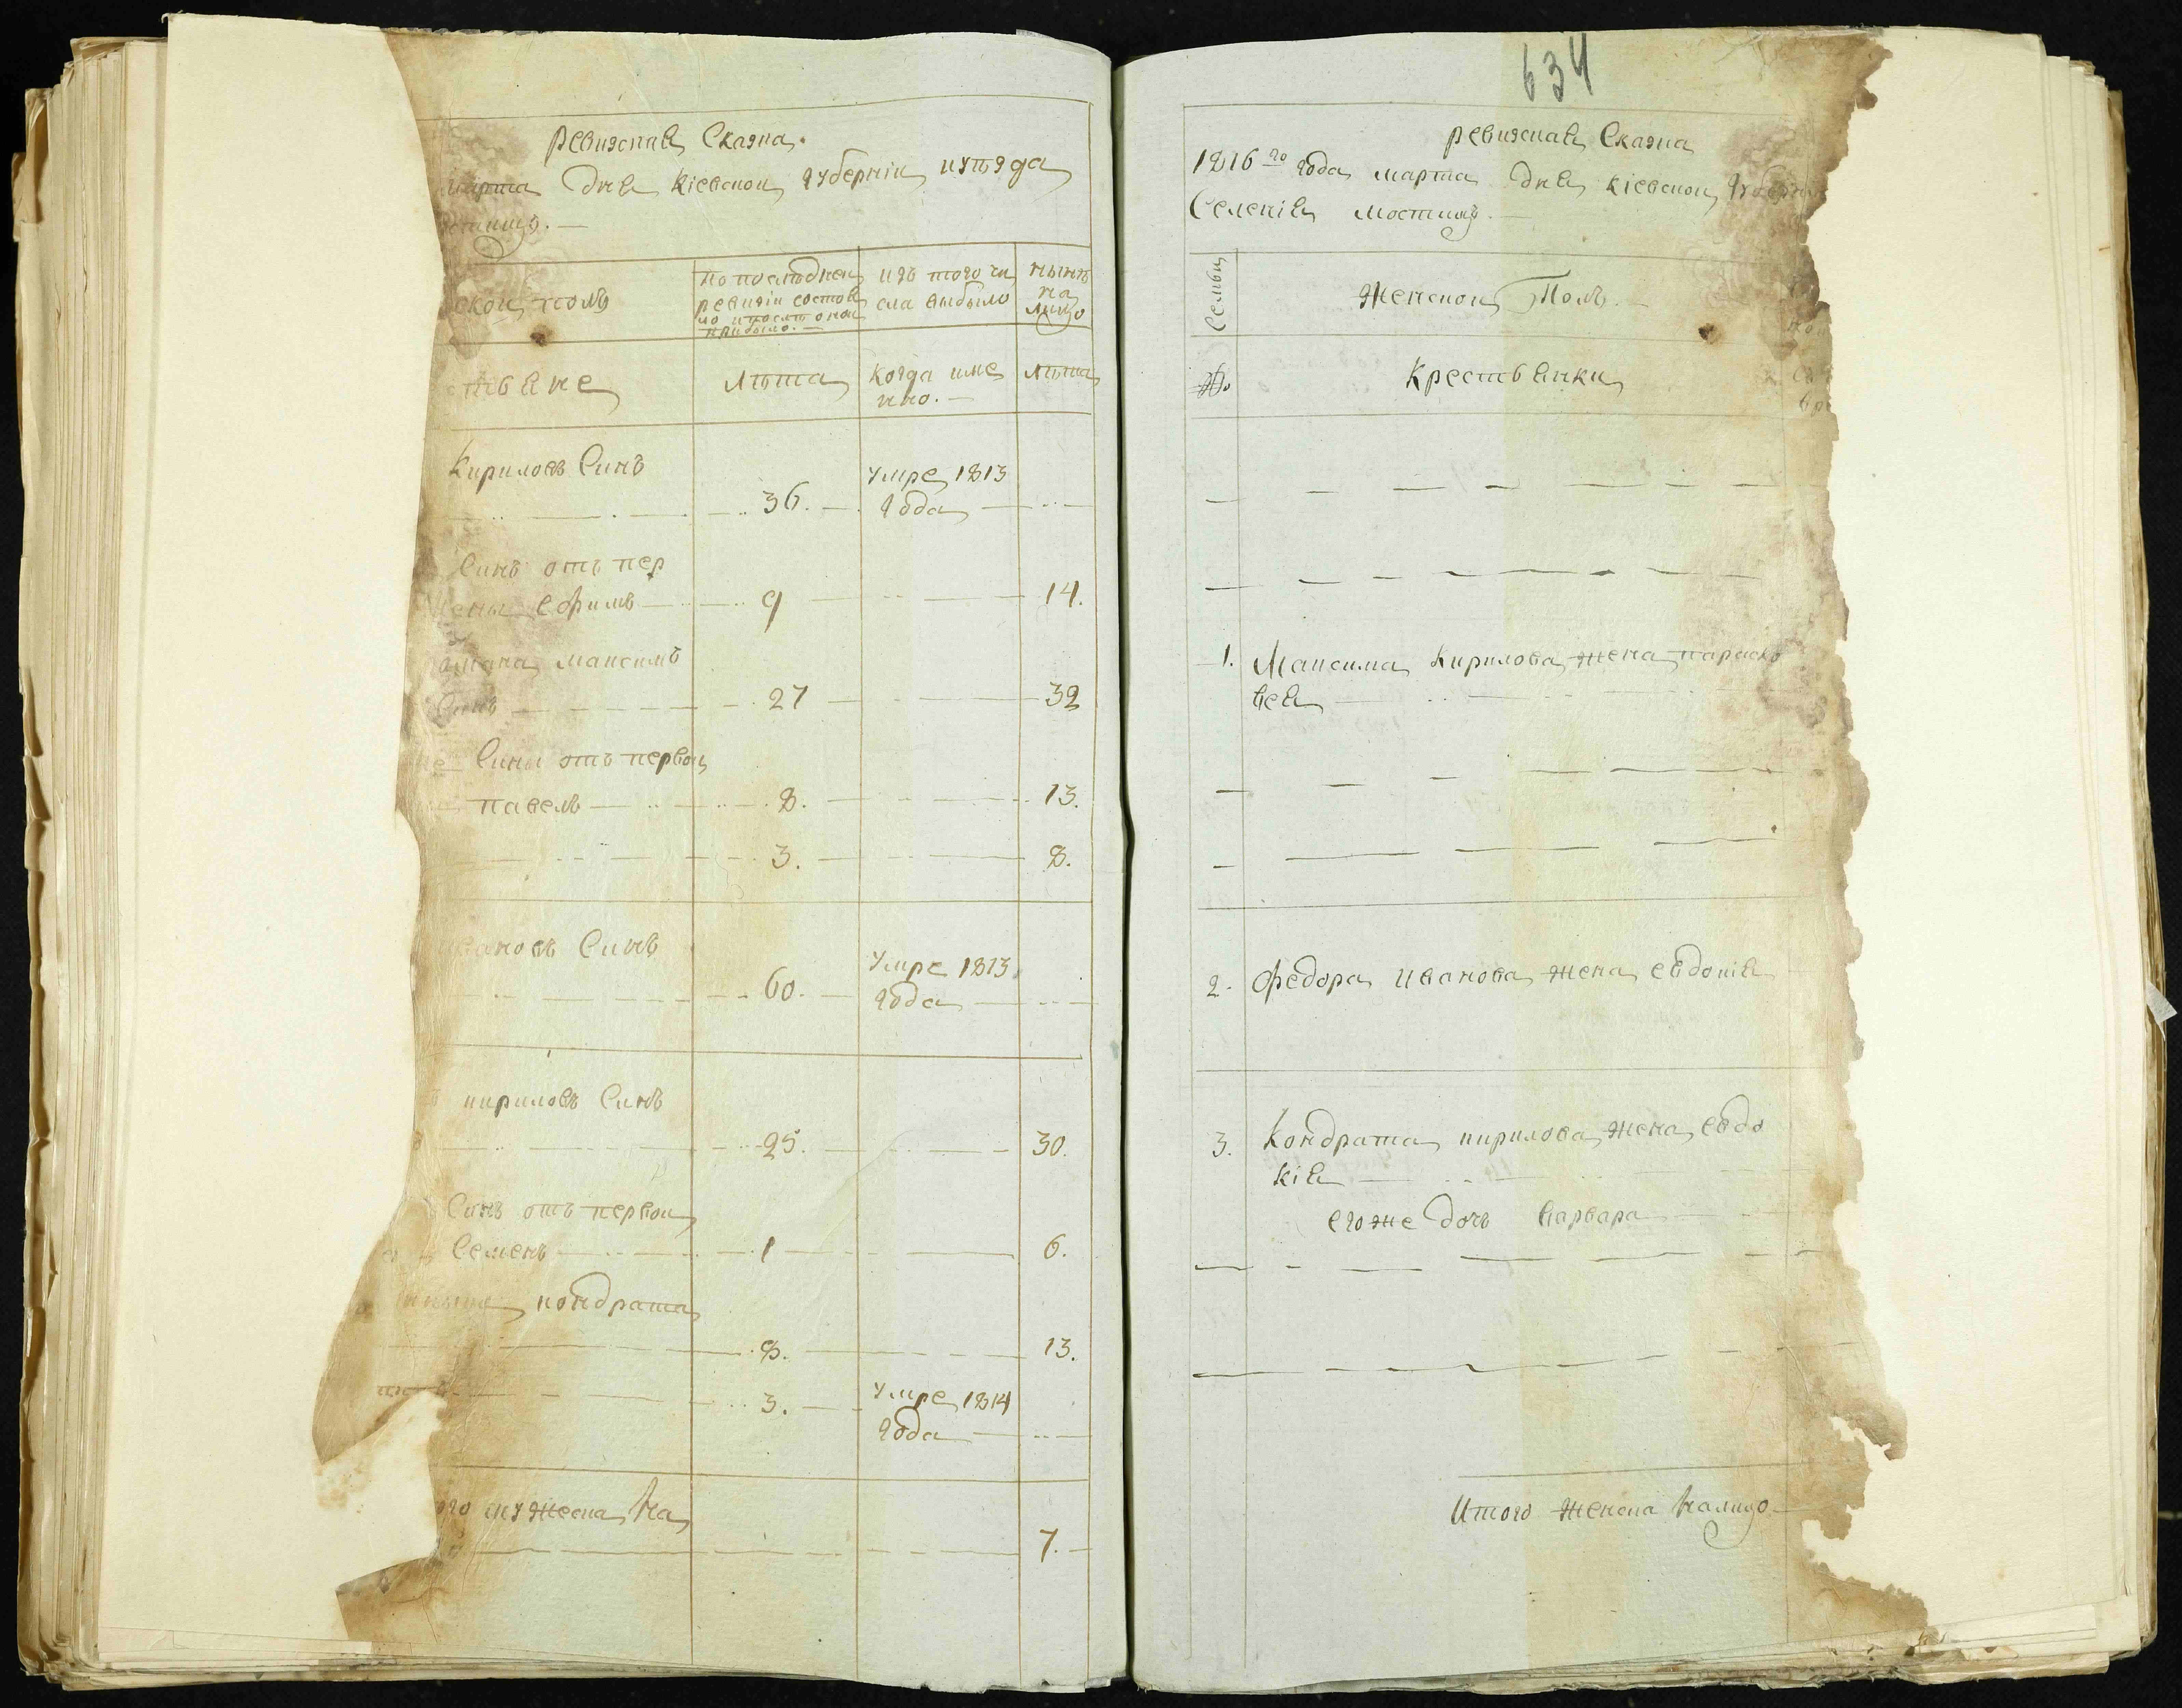 Ревизская Сказка.
марта дня Кіевской губерніи и уѣзда
по последней
ревизіи состоя
ло и после оной
прибыло.
изъ того чи
сла выбыло
нынѣ
на
лицо
лѣта
когда име
нно.
лѣта
Кириловъ Синъ
36.
умре 1813
года
Синъ отъ пер
Ефимъ 9 14.
Максимъ
27 32
Сины отъ первой
павелъ 8. 13.
3. 8.
Ивановъ Синъ
60.
умре 1813
года
кириловъ Синъ
25. 30.
Синъ отъ первой
Семенъ 1 6.
кондрата
8. 13.
3.
умре 1814
года
мужеска на
7.
634
ревизская Сказка
1816го года марта дня кіевской губерніи
Селенія мостищъ.
Семьи
Женской Полъ.
№
Крестьянки
1. Максима Кирилова жена параско
вея
2. Федора Иванова жена евдокія
3. Кондрата кирилова жена евдо
кія
его же дочь варвара
Итого женска налицо